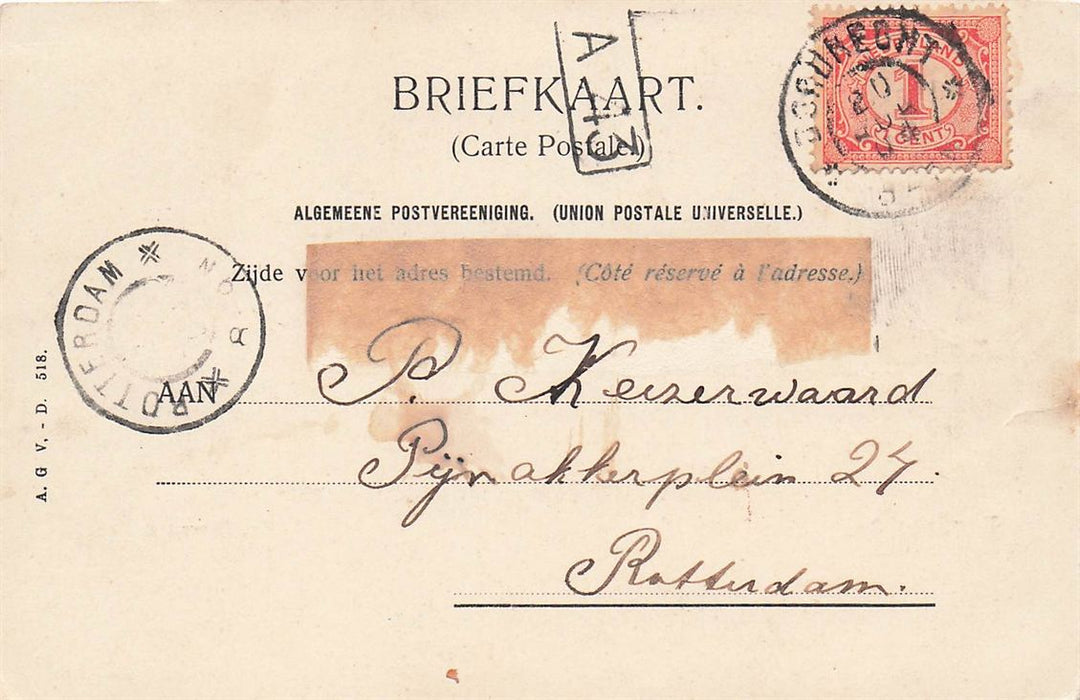 BRIEFKAART.
(Carte Postale.)
A 43
DORDRECHT
NEDERLAND
1
CENT
ALGEMEENE POSTVEREENIGING. (UNION POSTALE UNIVERSELLE.)
Zijde voor het adres bestemd. (Côté réservé à l'adresse.)
ROTTERDAM
AAN P. Keizerwaard
Pijnakkerplein 24.
Rotterdam.
A. G V. - D. 518.